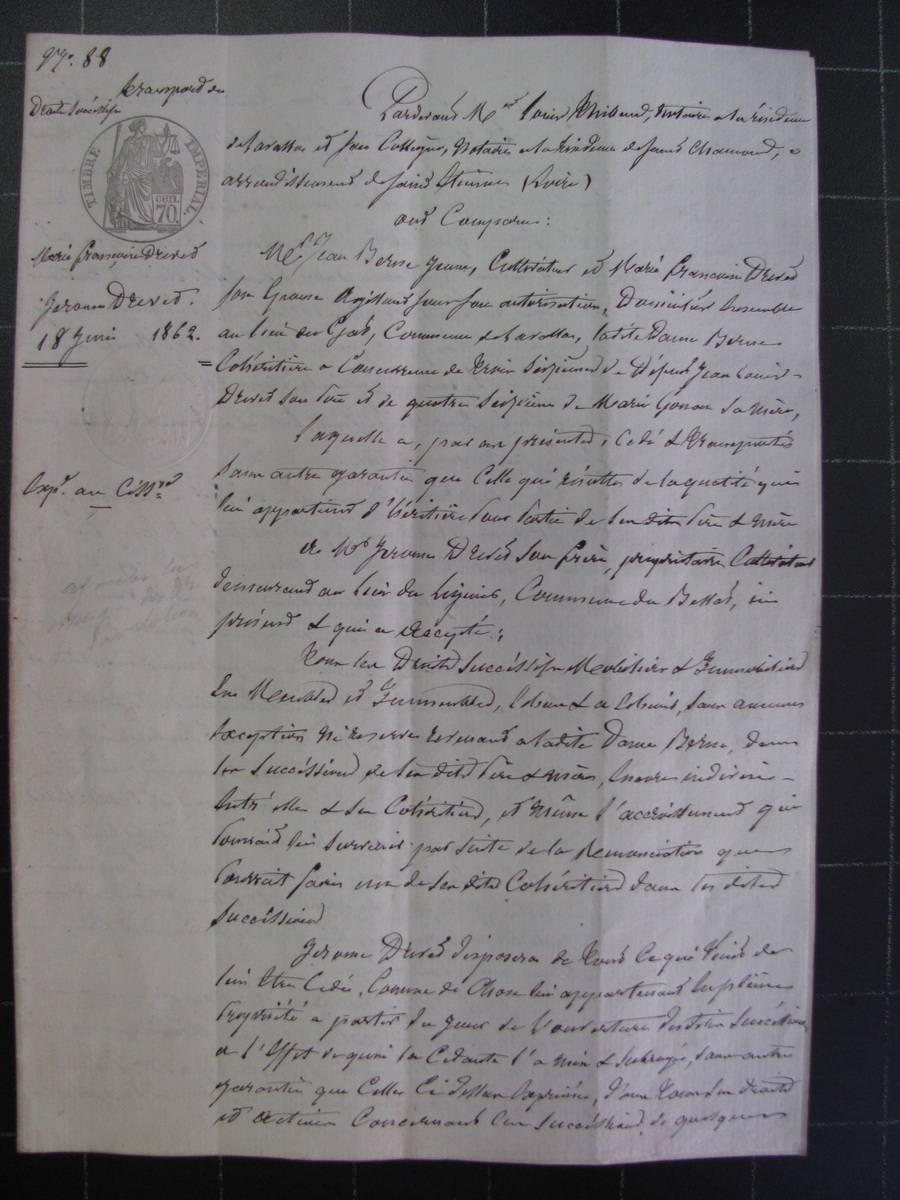 N.º 88
Transport de
Droits Successifs
TIMBRE IMPERIAL
CENT. 70
Marie françoise Drevet
Jerome Drevet
18 Juin 1862.
Exp.on au Cess.re
Pardevant M.e Louis Thibaud, Notaire à la résidence
de Lavalla et son Collegue, Notaire à la residence de saint Chamond,
arrondissement de saint Etienne (Loire)
ont Comparu:
Jean Berne Cultivateur et Marie francoise Drevet
son Epouse agissant sous son autorisation, Domiciliés ensemble
au lieu de Commune de Lavalla, ladite Dame Berne
Cohéritière à Concurrence de trois Seizièmes de Défunt Jean Louis
Drevet son Père et de quatre Seizièmes de Marie sa Mère,
Laquelle a, par ces présentes, Cédé & transporté
sans autre garantie que Celle qui résulte de la qualité qui
lui appartient d'héritière pour Partie de ses dits Père & Mère
à M.r Jerome Drevet son frère, propriétaire Cultivateur
demeurant au lieu du Commune du Bessat, ici
présent & qui a accepté:
Tous les Droits Successifs Mobiliers & Immobiliers
En Meubles et Immeubles, sans aucune
Exception ni réserve revenant à ladite Dame Berne, dans
les Successions de ses dits Père & Mère, encore indivises
Entr'elle & ses Cohéritiers, et Même l'accroissement qui
Pourrait lui survenir par suite de la Renonciation que
Pourrait faire un de ses dits Cohéritiers dans les dites
Successions
Jerome Drevet disposera de tout Ce qui Vient de
lui être Cédé, Comme de Chose lui appartenant En pleine
Propriété à partir du jour de l'ouverture des dites Successions,
à l'Effet de quoi la Cédante l'a mis & subrogé, sans autre
garantie que Celle Ci dessus Exprimée, dans tous ses droits
et actions Concernant les Successions, de quelques